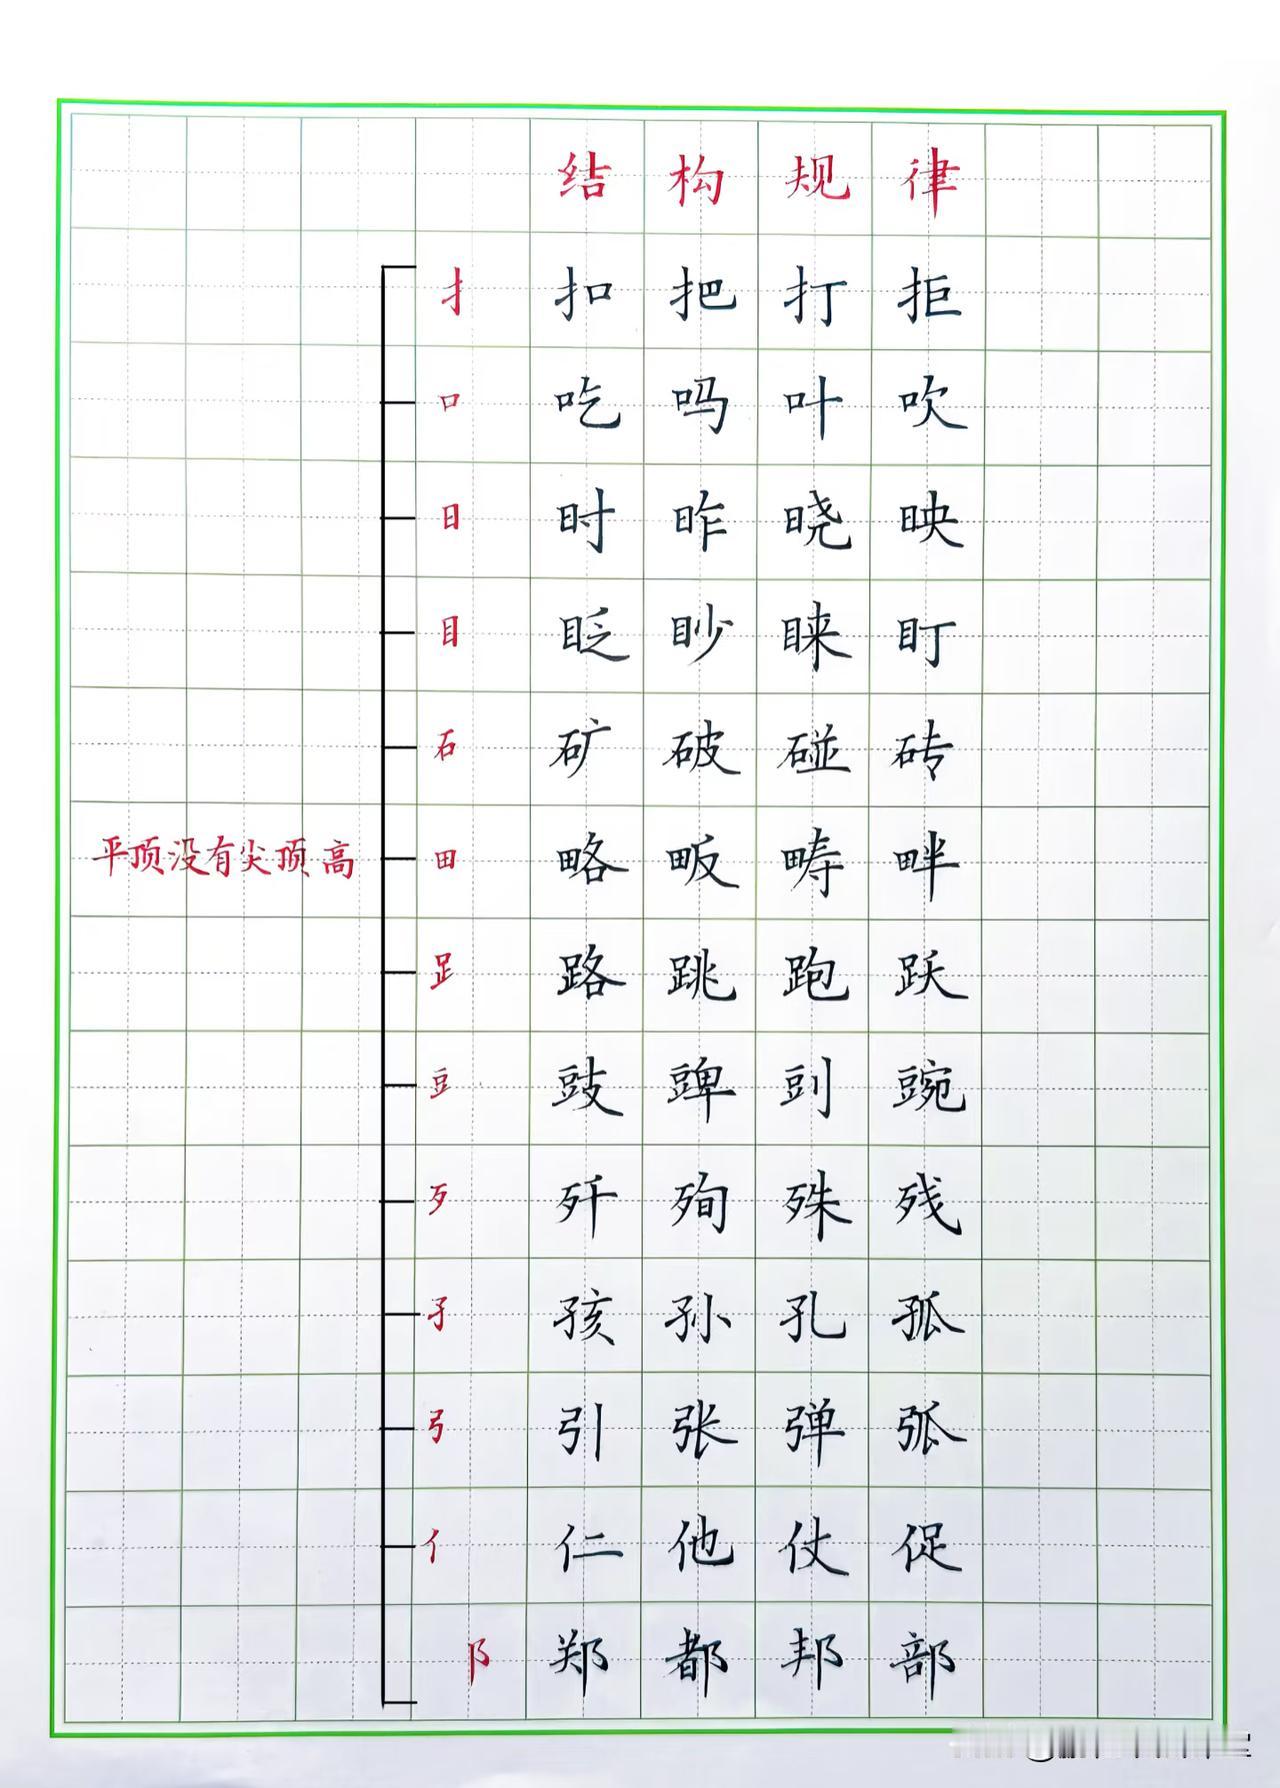 结构规律
扌 扣 把 打 拒
口 吃 吗 叶 吹
日 时 昨 晓 映
目 眨 眇 睐 盯
石 矿 破 碰 砖
平顶没有尖顶高 田 略 畈 畴 畔
𧾷 路 跳 跑 跃
豆 豉 豍 剅 豌
歹 歼 殉 殊 残
孑 孩 孙 孔 孤
弓 引 张 弹 弧
亻 仁 他 仗 促
阝 郑 都 邦 部